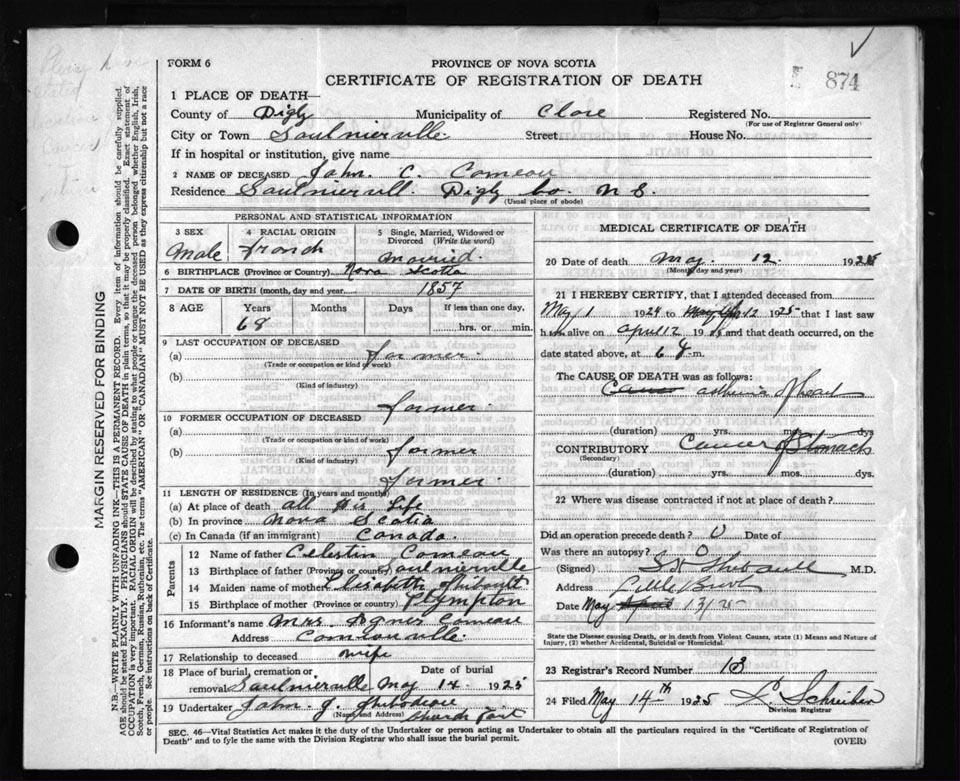 FORM 6
PROVINCE OF NOVA SCOTIA
CERTIFICATE OF REGISTRATION OF DEATH
874
1 PLACE OF DEATH—
County of Digby Municipality of Clare Registered No.
(For use of Registrar General only)
City or Town Saulnierville Street House No.
If in hospital or institution, give name
2 NAME OF DECEASED John. C. Comeau
Residence Saulniervill. Digby Co. N S.
(Usual place of abode)
PERSONAL AND STATISTICAL INFORMATION
3 SEX
Male
4 RACIAL ORIGIN
French
5 Single, Married, Widowed or Divorced (Write the word)
Married.
6 BIRTHPLACE (Province or Country) Nova Scotia
7 DATE OF BIRTH (month, day and year) 1857
8 AGE Years Months Days If less than one day,
68 hrs. or min.
9 LAST OCCUPATION OF DECEASED
(a) farmer.
(Trade or occupation or kind of work)
(b)
(Kind of industry)
farmer
10 FORMER OCCUPATION OF DECEASED
(a)
(Trade or occupation or kind of work)
(b) farmer
(Kind of industry)
farmer.
11 LENGTH OF RESIDENCE (In years and months)
(a) At place of death all His Life
(b) In province Nova Scotia
(c) In Canada (if an immigrant) Canada.
Parents
12 Name of father Celestin Comeau
13 Birthplace of father (Province or country) Saulnierville
14 Maiden name of mother Elisabeth Thibault
15 Birthplace of mother (Province or country) Plympton
16 Informant's name Mrs Agnes Comeau
Address Comeauville.
17 Relationship to deceased wife
18 Place of burial, cremation or removal Saulnierville Date of burial May 14. 1925
19 Undertaker John. J. Thibodeau
(Name and Address) Church Point
MEDICAL CERTIFICATE OF DEATH
20 Date of death May. 12. 1925
(Month, day and year)
21 I HEREBY CERTIFY, that I attended deceased from
May 1 1924 to 12 1925 that I last saw
him alive on April 12 19 and that death occurred, on the
date stated above, at 6 m.
The CAUSE OF DEATH was as follows:
(duration) yrs. mos. dys
CONTRIBUTORY Cancer of Stomach
(Secondary)
(duration) yrs. mos. dys.
22 Where was disease contracted if not at place of death?
Did an operation precede death? O Date of
Was there an autopsy? O
(Signed) Thibault M.D.
Address Little Brook
Date May 13/25
State the Disease causing Death, or in death from Violent Causes, state (1) Means and Nature of
Injury, (2) whether Accidental, Suicidal or Homicidal.
23 Registrar's Record Number 13
24 Filed May 14th 1925
Division Registrar
SEC. 46—Vital Statistics Act makes it the duty of the Undertaker or person acting as Undertaker to obtain all the particulars required in the "Certificate of Registration of
Death" and to fyle the same with the Division Registrar who shall issue the burial permit. (OVER)
MARGIN RESERVED FOR BINDING
N.B.—WRITE PLAINLY WITH UNFADING INK—THIS IS A PERMANENT RECORD. Every item of information should be carefully supplied.
AGE should be stated EXACTLY. PHYSICIANS should STATE CAUSE OF DEATH in plain terms, so that it may be properly classified. Exact statement of
OCCUPATION is very important. RACIAL ORIGIN will be described by stating to what people or tongue the deceased person belonged whether English, Irish,
Scotch, French, German, Russian, Ruthenian, etc. The terms "AMERICAN" OR "CANADIAN" MUST NOT BE USED as they express citizenship but not a race
or people. See instructions on back of Certificate.